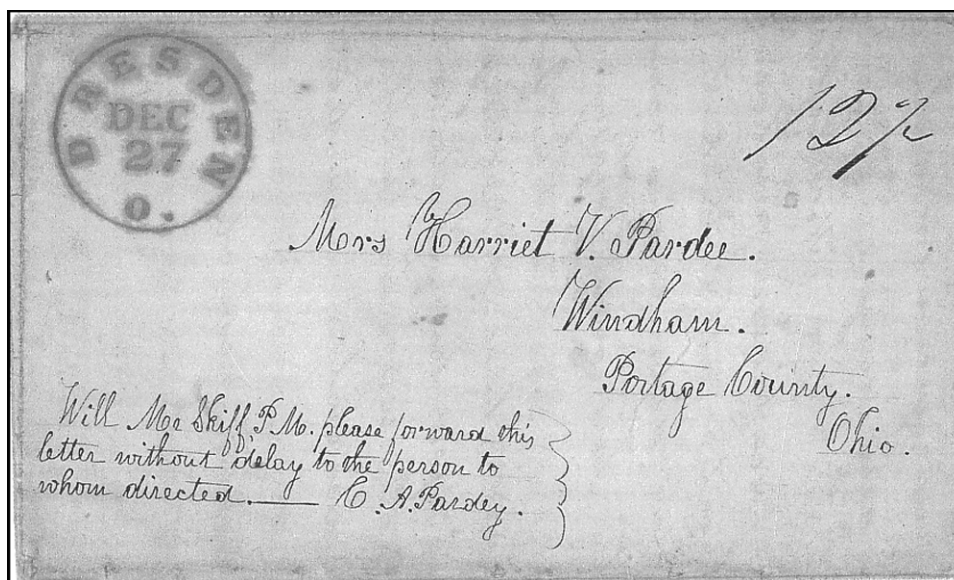 DRESDEN
DEC
27
O.
12½
Mrs Harriet V. Pardee.
Windham.
Portage County.
Ohio.
Will Mr Skiff P.M. please forward this
letter without delay to the person to
whom directed. — C. A. Pardey.